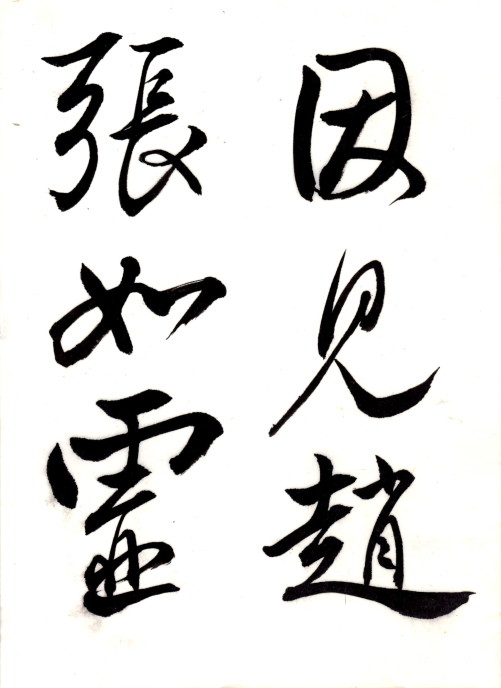 因見趙
張如靈